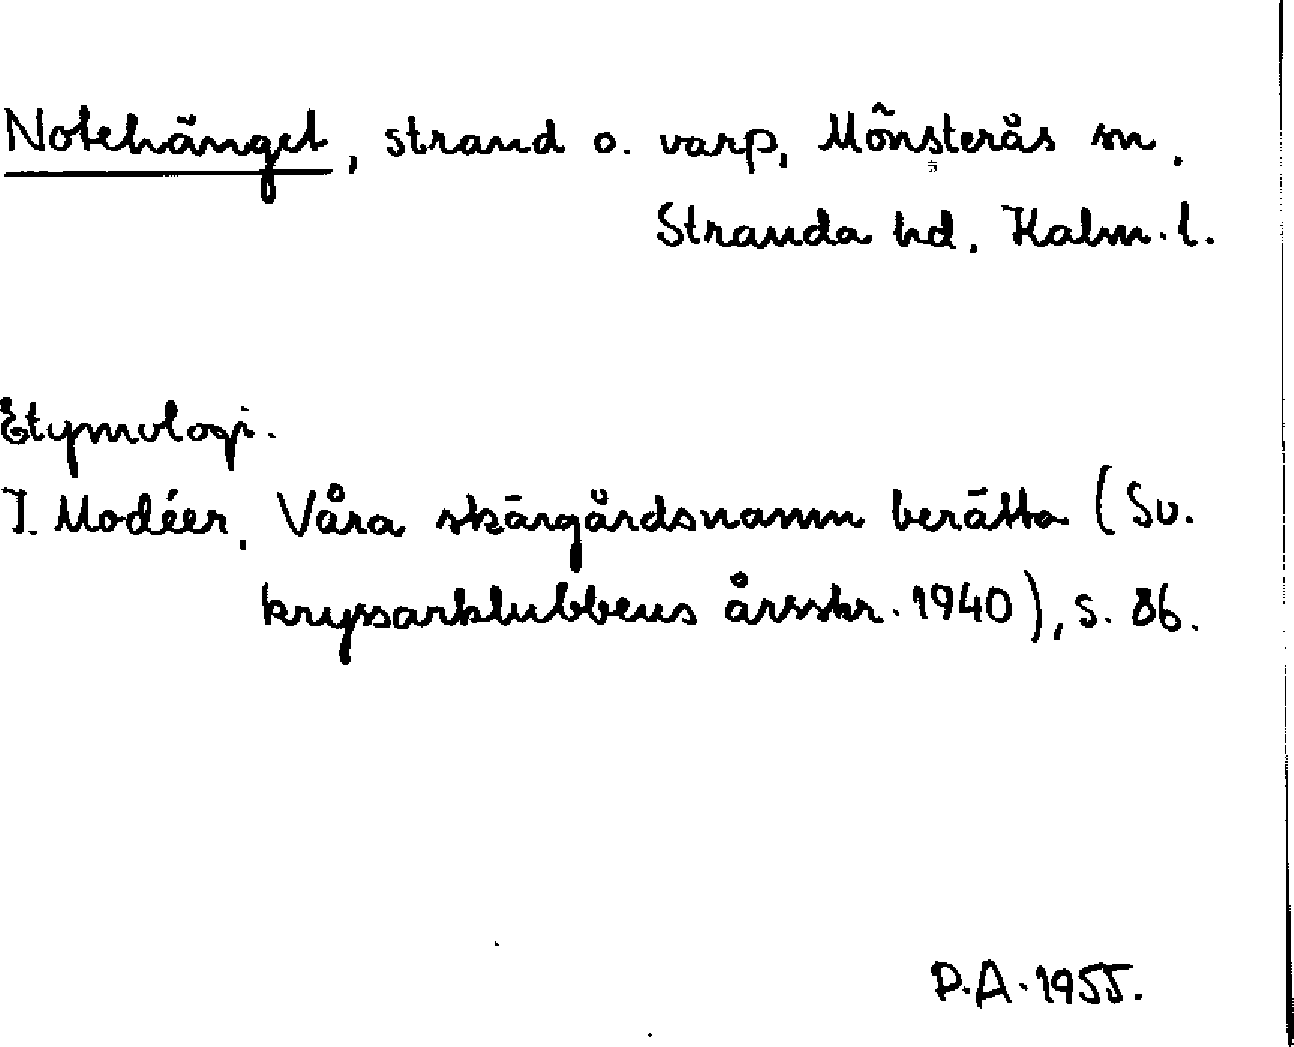 Notehänget, strand o. varp, Mönsterås sn,
Stranda hd, Kalm. l.
Etymologi.
I. Modéer, Våra skärgårdsnamn berätta (Sv.
kryssarklubbens årsskr. 1940), s. 86.
P.A. 1955.